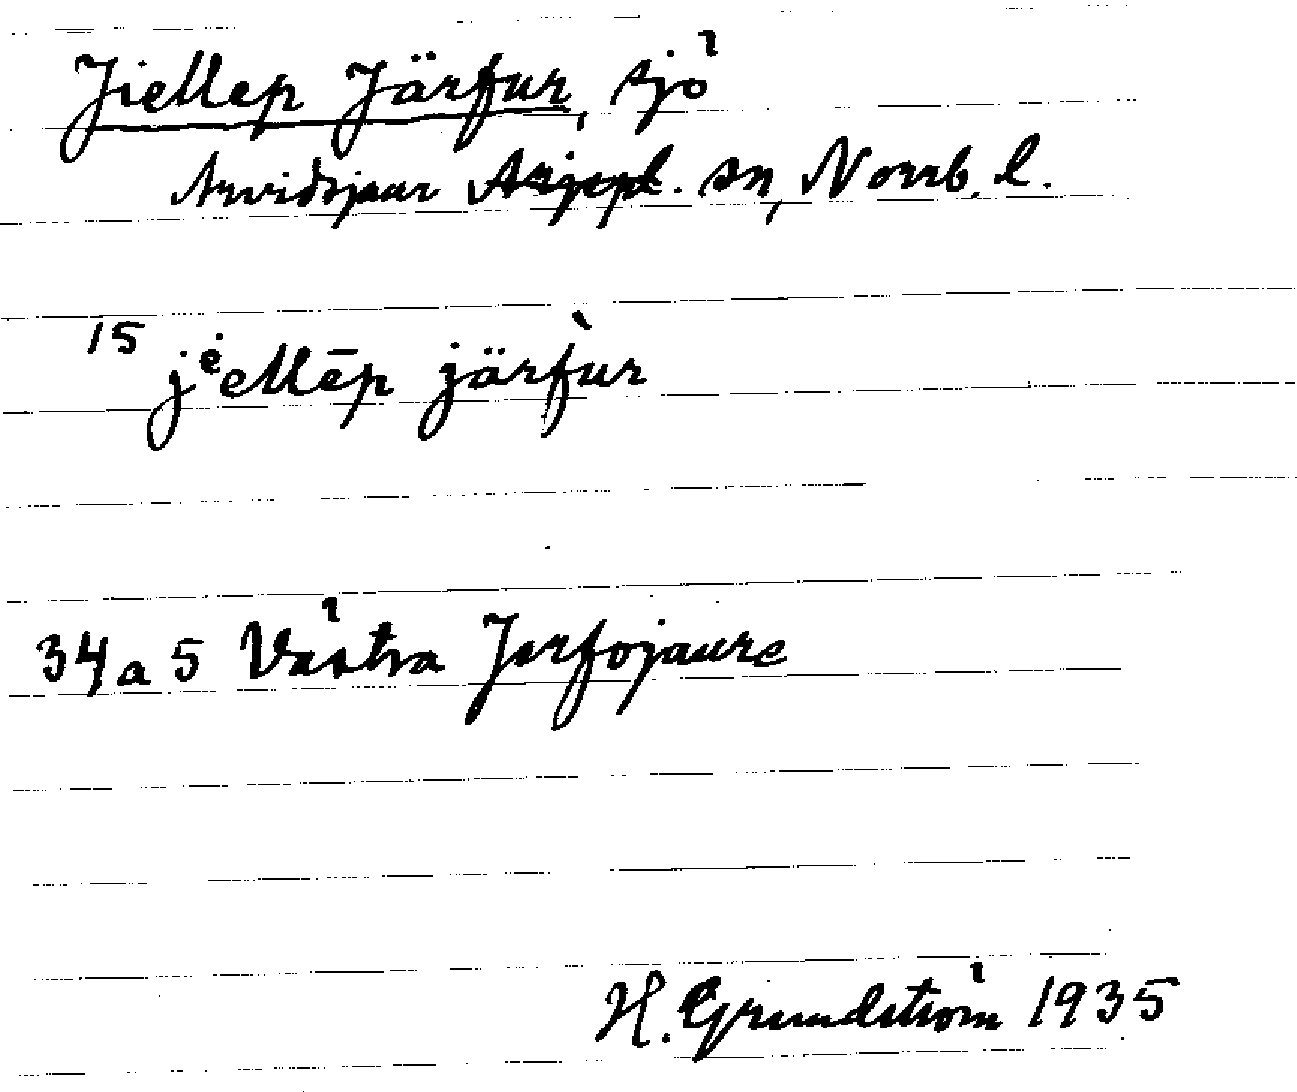 Jiellep Järfur, sjö
Arvidsjaur Arjepl. sn, Norrb. l.
15 jėellēp järfùr
34a5 Västra Jerfojaure
H. Grundström 1935